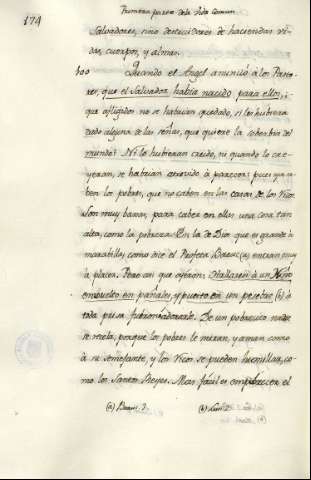 174
Primera parte de la Vida Comun
Salvadores, sino destruidores de haciendas vi-
das, cuerpos, y almas.
300 Quando el Angel anunció á los Pasto-
res, que el Salvador havia nacido para ellos,
que afligidos no se habrian quedado, si les hubiera
dado alguna de las señas, que quiere la soberbia del
mundo? Ni lo hubieran creido, ni quando lo cre-
yeran, se habrian atrevido á parecer: pues ya sa-
ben los pobres, que no caben en las casas de los Ricos
Son muy baxas, para caber en ellas una cosa tan
alta, como la pobreza. En la de Dios que es grande á
maravilla, como dice el Profeta Baruc (a) entran muy
á placer. Pero asi que oyeron: Hallareis á un Niño
embuelto en pañales, y puesto en un pesebre (b) á
toda prisa fueron á adorarle. De un pobrecito nadie
se recela, porque los pobres le miran, y aman como
á su semejante, y los Ricos se pueden humillar, co-
mo los Santos Reyes. Mas facil es empobrecer el
(a) Baruc. 3. (b) Luc. 2.